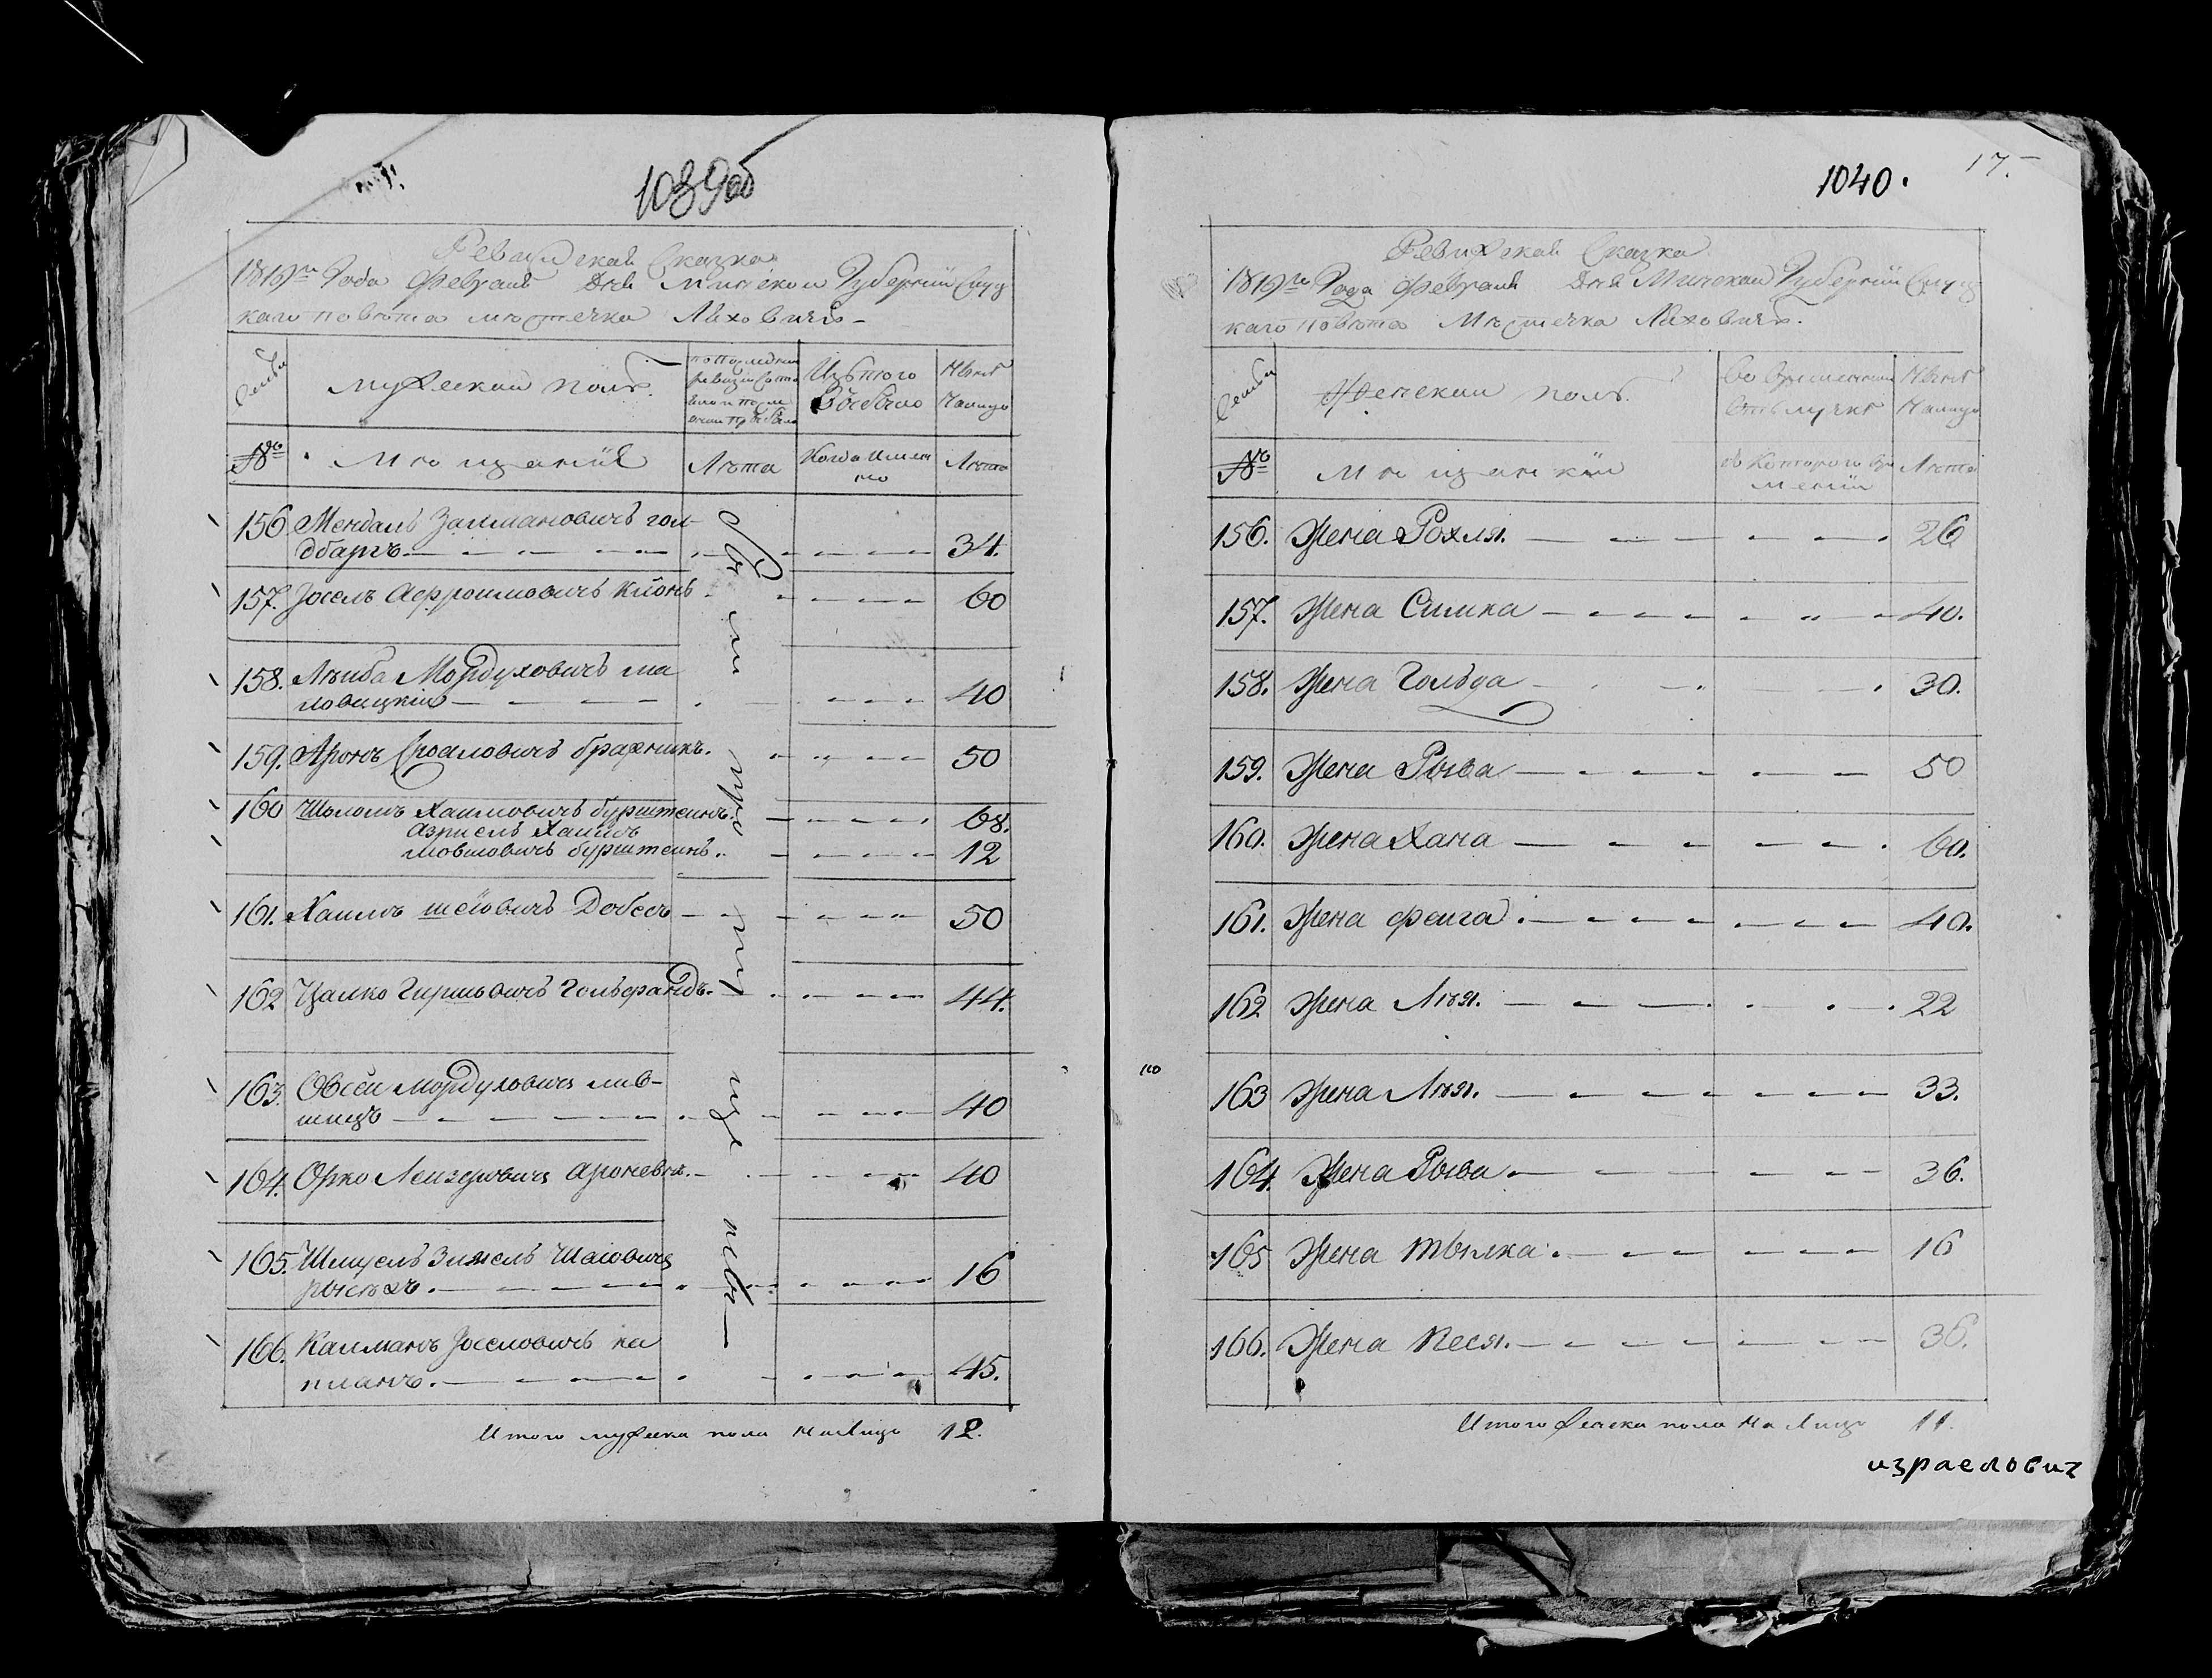 1039об
Ревизская Сказка
1819го Года Февраля Дня Минской Губернии Слуц
каго повета местечка Ляховичъ
Семьи
мужеский полъ.
по последней
ревизии состо
яло и после
оной прибыло
Изъ того
Выбыло
Ныне
Налицо
№
Мещание
Лета
Когда имян
но
Лета
156 Мендаль Залмановичъ гол-
дбаргъ 34.
157. Іосель Афроимовичъ Кіонъ 60
158. Лейба Мордуховичъ ма
ловицкій 40
159. Аронъ Сроаловичъ бражникъ. 50
160 Шоломъ Хаимовичъ бурштеинъ. 68.
Азриель Хаимъ
мовшовичъ бурштеинъ. 12
161. Хаимъ шеіовичъ Добесъ 50
162 Цалко Гиршовичъ Гольфандъ. 44.
163. Овсей Мордуховичъ лив-
шицъ 40
164. Орко Лейзеровичъ Ароневич. 40
165. Шмуель Зимель Шаіовичъ
рысехъ. 16
166. Калманъ Іоселовичъ ка
планъ. 45.
Итого мужеска пола налицо 12.
1040.
17.
Ревизская Сказка
1819го Года Февраля Дня Минской Губернии Слуц
каго повета Местечка Ляховичъ.
Семьи
Женский полъ.
Во временной
отлучке
Ныне
Налицо
№
Мещанкии
съ которого вре
мении
Лета
156. Жена Рохля. 26
157. Жена Симка 40.
158. Жена Гольда 30.
159. Жена Рыва 50
160. Жена Хана 60.
161. Жена фейга. 40.
162 Жена Лея. 22
163 Жена Лея. 33.
164. Жена Рыва. 36.
165 Жена твилка. 16
166. Жена Песя. 36.
Итого женска пола на лицо 11.
израелович